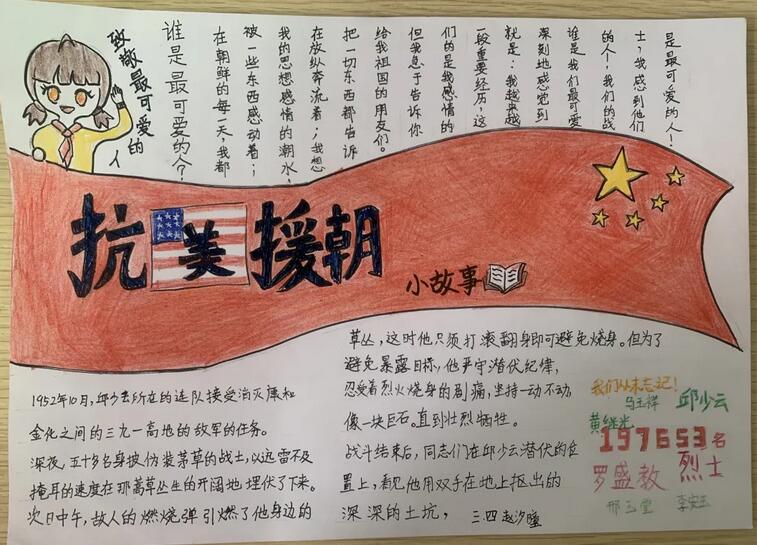 致敬最可爱的人
谁是最可爱的人?
在朝鲜的每一天,我都
被一些东西感动着;
我的思想感情的潮水,
在放纵奔流着;我想
把一切东西都告诉
给我祖国的朋友们。
但我急于告诉你
们的是我感情的
段重要经历,这
就是:我越来越
深刻地感觉到
谁是我们最可爱
的人!我们的战
士,我感到他们
是最可爱的人!
抗美援朝
小故事
1952年10月,邱少云所在的连队接受消灭廉和
金化之间的三九一高地的敌军的任务。
深夜,五十多名身披伪装茅草的战士,以迅雷不及
掩耳的速度在那蒿草丛生的开阔地埋伏了下来。
次日中午,敌人的燃烧弹引燃了他身边的
草丛,这时他只须打滚翻身即可避免烧身。但为了
避免暴露目标,他严守潜伏纪律,
忍受着烈火烧身的剧痛,坚持一动不动,
像一块巨石。直到壮烈牺牲。
战斗结束后,同志们在邱少云潜伏的位
置上,看见他用双手在地上抠出的
深深的土坑,
三.四 赵汐瞳
我们从未忘记!
马玉祥 邱少云
黄继光
197653名
罗盛教 烈士
邢玉堂